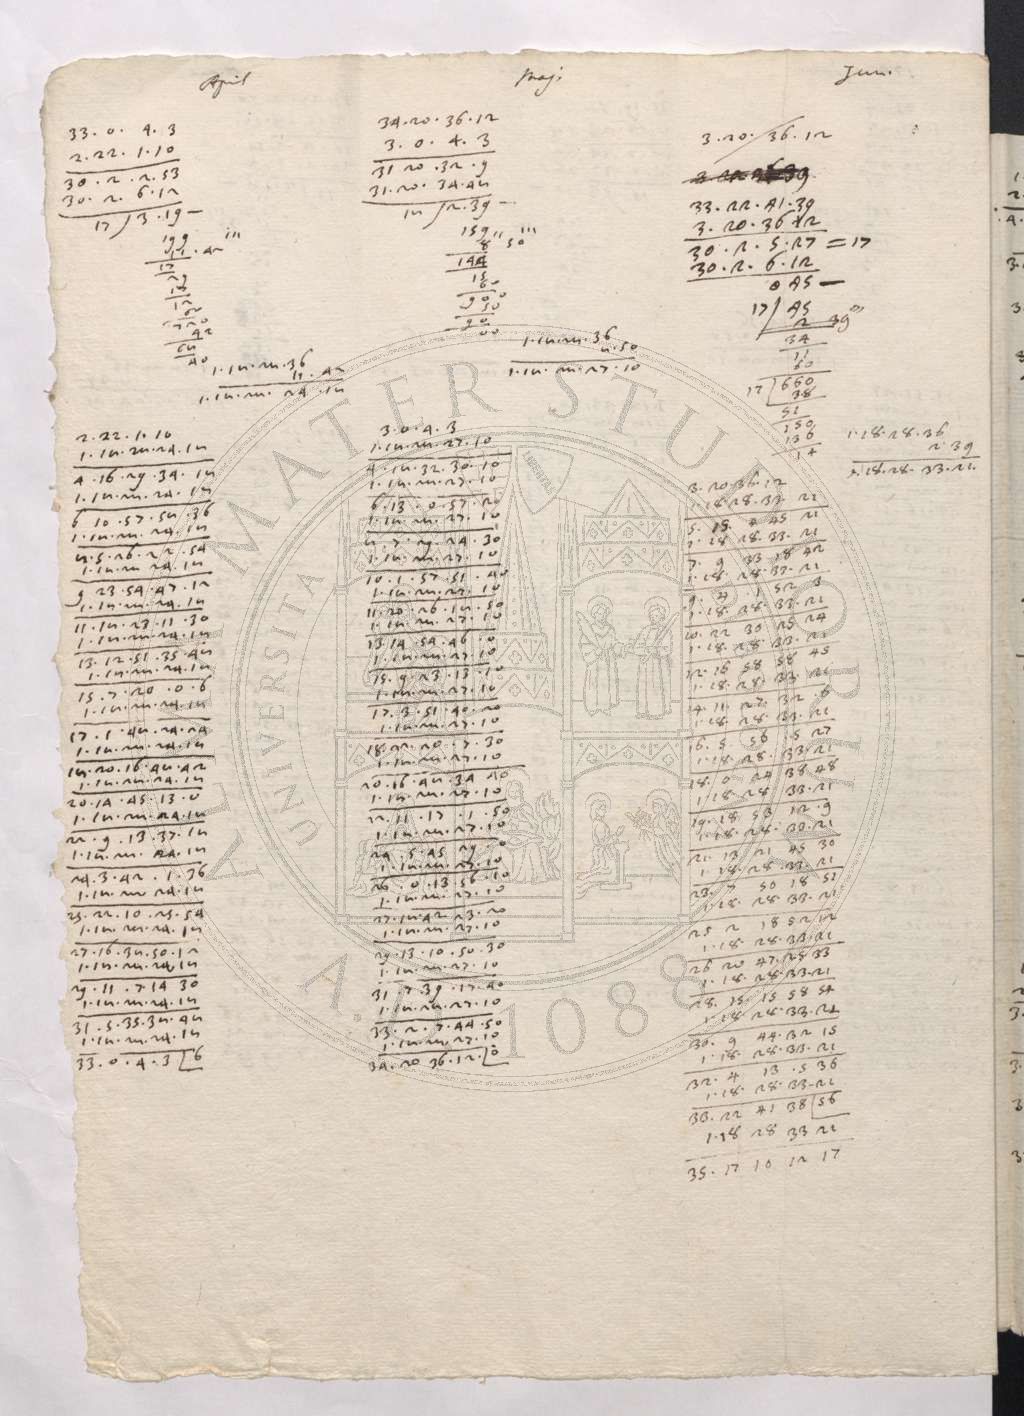 April
33.0.4.3
2.22.1.10
30.2.2.53
30.2.6.12
17 3.19–
199
11.42'''
17
29
17
12
60
720
42
68
40
1.18.28.36
11.42
1.18.28.24.18
2.22.1.10
1.18.28.24.18
4.16.29.34.18
1.18.28.24.18
6.10.57.58.36
1.18.28.24.18
8.5.26.22.54
1.18.28.24.18
9.23.54.47.12
1.18.28.24.18
11.18.23.11.30
1.18.28.24.18
13.12.51.35.48
1.18.28.24.18
15.7.20.0.6
1.18.28.24.18
17.1.48.24.24
1.18.28.24.18
18.20.16.48.42
1.18.28.24.18
20.14.45.13.0
1.18.28.24.18
22.9.13.37.18
1.18.28.24.18
24.3.42.1.36
1.18.28.24.18
25.22.10.25.54
1.18.28.24.18
27.16.38.50.12
1.18.28.24.18
29.11.7.14.30
1.18.28.24.18
31.5.35.38.48
1.18.28.24.18
33.0.4.3 6
Maj.
34.20.36.12
3.0.4.3
31.20.32.9
31.20.34.48
18 2.39–
159
8''50'''
144
15
60
900
50
90
00
1.18.28.36
8.50
1.18.28.27.10
3.0.4.3
1.18.28.27.10
4.18.32.30.10
1.18.28.27.10
6.13.0.57.20
1.18.28.27.10
8.7.29.24.30
1.18.28.27.10
10.1.57.51.40
1.18.28.27.10
11.20.26.18.50
1.18.28.27.10
13.14.54.46.0
1.18.28.27.10
15.9.23.13.10
1.18.28.27.10
17.3.51.40.20
1.18.28.27.10
18.22.20.7.30
1.18.28.27.10
20.16.48.34.40
1.18.28.27.10
22.11.17.1.50
1.18.28.27.10
24.5.45.29.0
1.18.28.27.10
26.0.13.56.10
1.18.28.27.10
27.18.42.23.20
1.18.28.27.10
29.13.10.50.30
1.18.28.27.10
31.7.39.17.40
1.18.28.27.10
33.2.7.44.50
1.18.28.27.10
34.20.36.12.0
Jun.
3.20.36.12
33.22.41.39
3.20.36.12
30.2.5.27=17
30.2.6.12
0 45–
17 45
2 39'''
34
11
60
17 660
38
51
150
136
14
1.18.28.36
2 39
1.18.28.33.21
3.20.36.12
1.18.28.33.21
5.15.4.45.21
1.18.28.33.21
7.9.33.18.42
1.18.28.33.21
9.4.1.52.3
1.18.28.33.21
10.22.30.25.24
1.18.28.33.21
12.16.58.58.45
1.18.28.33.21
14.11.27.32.6
1.18.28.33.21
16.5.56.5.27
1.18.28.33.21
18.0.24.38.48
1.18.28.33.21
19.18.53.12.9
1.18.28.33.21
21.13.21.45.30
1.18.28.33.21
23.7.50.18.51
1.18.28.33.21
25.2.18.52.12
1.18.28.33.21
26.20.47.25.33
1.18.28.33.21
28.15.15.58.54
1.18.28.33.21
30.9.44.32.15
1.18.28.33.21
32.4.13.5.36
1.18.28.33.21
33.22.41.38 56
1.18 28 33 21
35.17 10 12 17
ALMA MATER STUDIORUM
UNIVERSITA
A.D. 1088